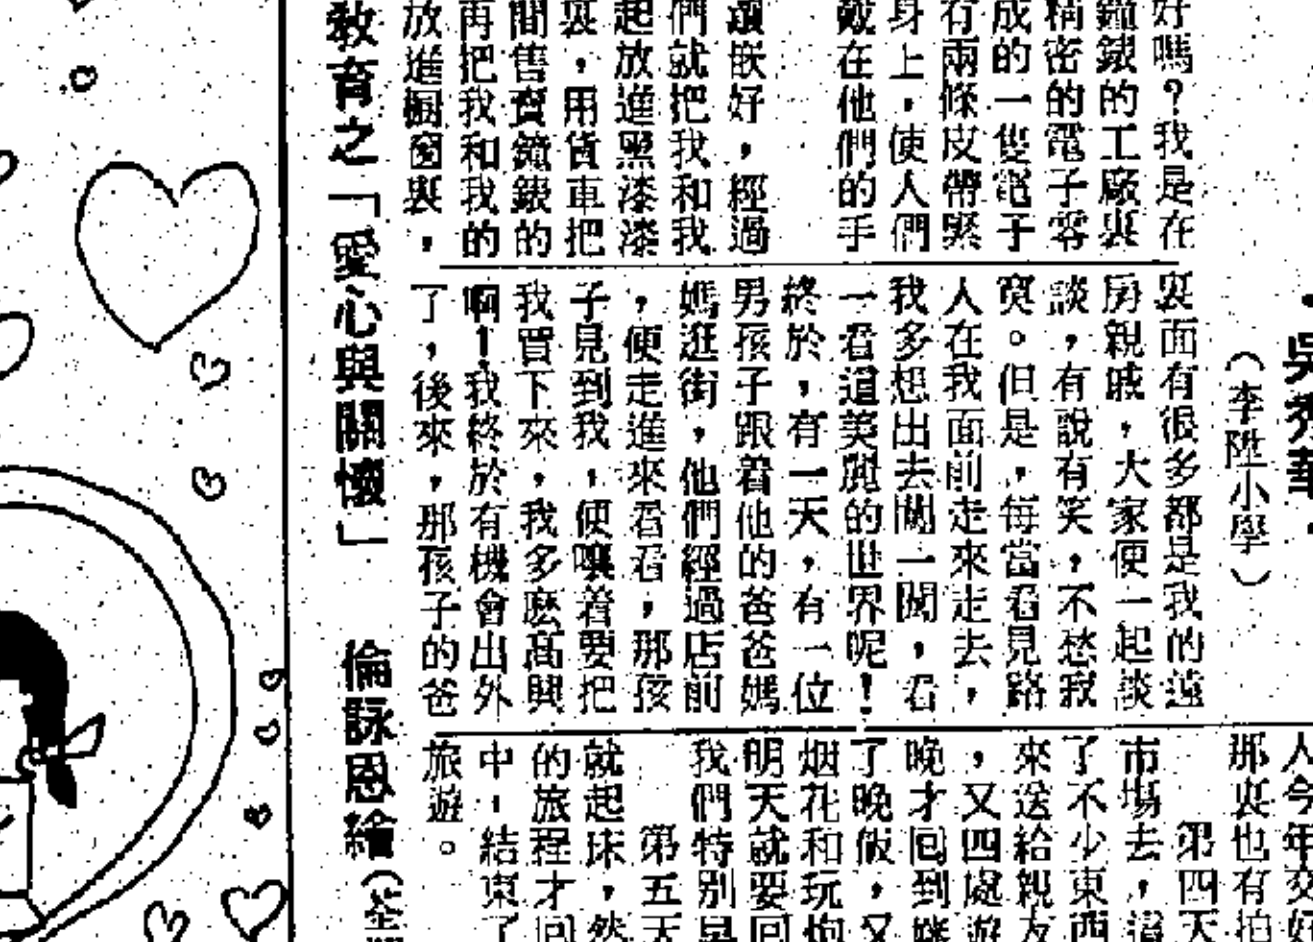 好嗎？我是在
鐘錶的工廠裏
精密的電子零
成的一隻電子
有兩條皮帶緊
身上，使人們
戴在他們的手
嵌好，經過
們就把我和我
起放進黑漆漆
裏，用貨車把
間售賣鐘錶的
再把我和我的
放進櫥窗裏，
（李陞小學）
裏面有很多都是我的遠
房親戚，大家便一起談
談，有說有笑，不愁寂
寞。但是，每當看見路
人在我面前走來走去，
我多想出去闖一闖，看
一看這美麗的世界呢！
終於，有一天，有一位
男孩子跟着他的爸爸媽
媽逛街，他們經過店前
，便走進來看看，那孩
子見到我，便嚷着要把
我買下來，我多麽高興
啊！我終於有機會出外
了，後來，那孩子的爸
人今年交好
那裏也有拍
第四天
市場去，
了不少東西
來送給親友
，又四處遊
晚才回到
了晚飯，又
烟花和玩炮
明天就要回
我們特別早
第五天
就起床，然
的旅程才回
中，結束了
旅遊。
教育之「愛心與關懷」　倫詠恩繪（